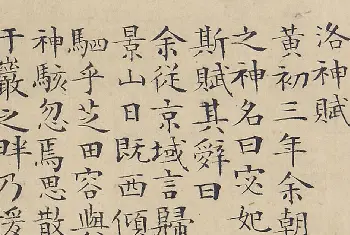 洛神賦
黃初三年余朝
之神名曰宓妃
斯賦其辭曰
余從京域言歸
景山日既西傾
駟乎芝田容與
神駭忽焉思散
于巖之畔乃援